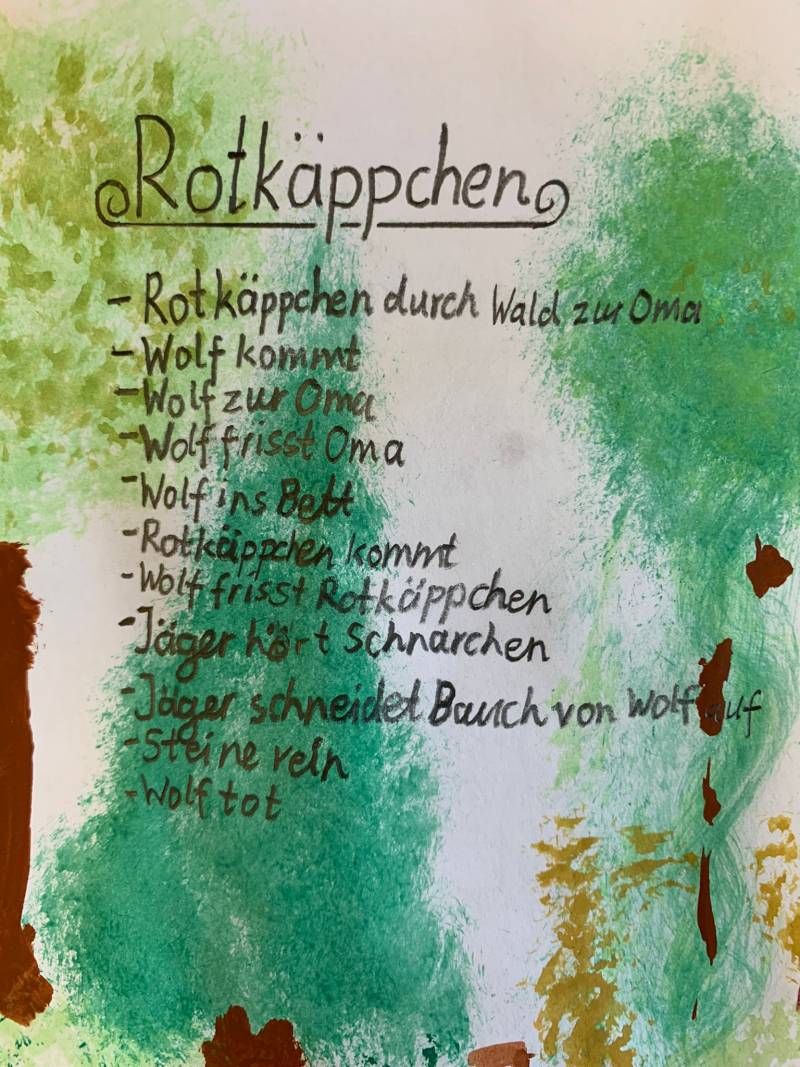 Rotkäppchen
- Rotkäppchen durch Wald zur Oma
- Wolf kommt
- Wolf zur Oma
- Wolf frisst Oma
- Wolf ins Bett
- Rotkäppchen kommt
- Wolf frisst Rotkäppchen
- Jäger hört Schnarchen
- Jäger schneidet Bauch von Wolf auf
- Steine rein
- Wolf tot